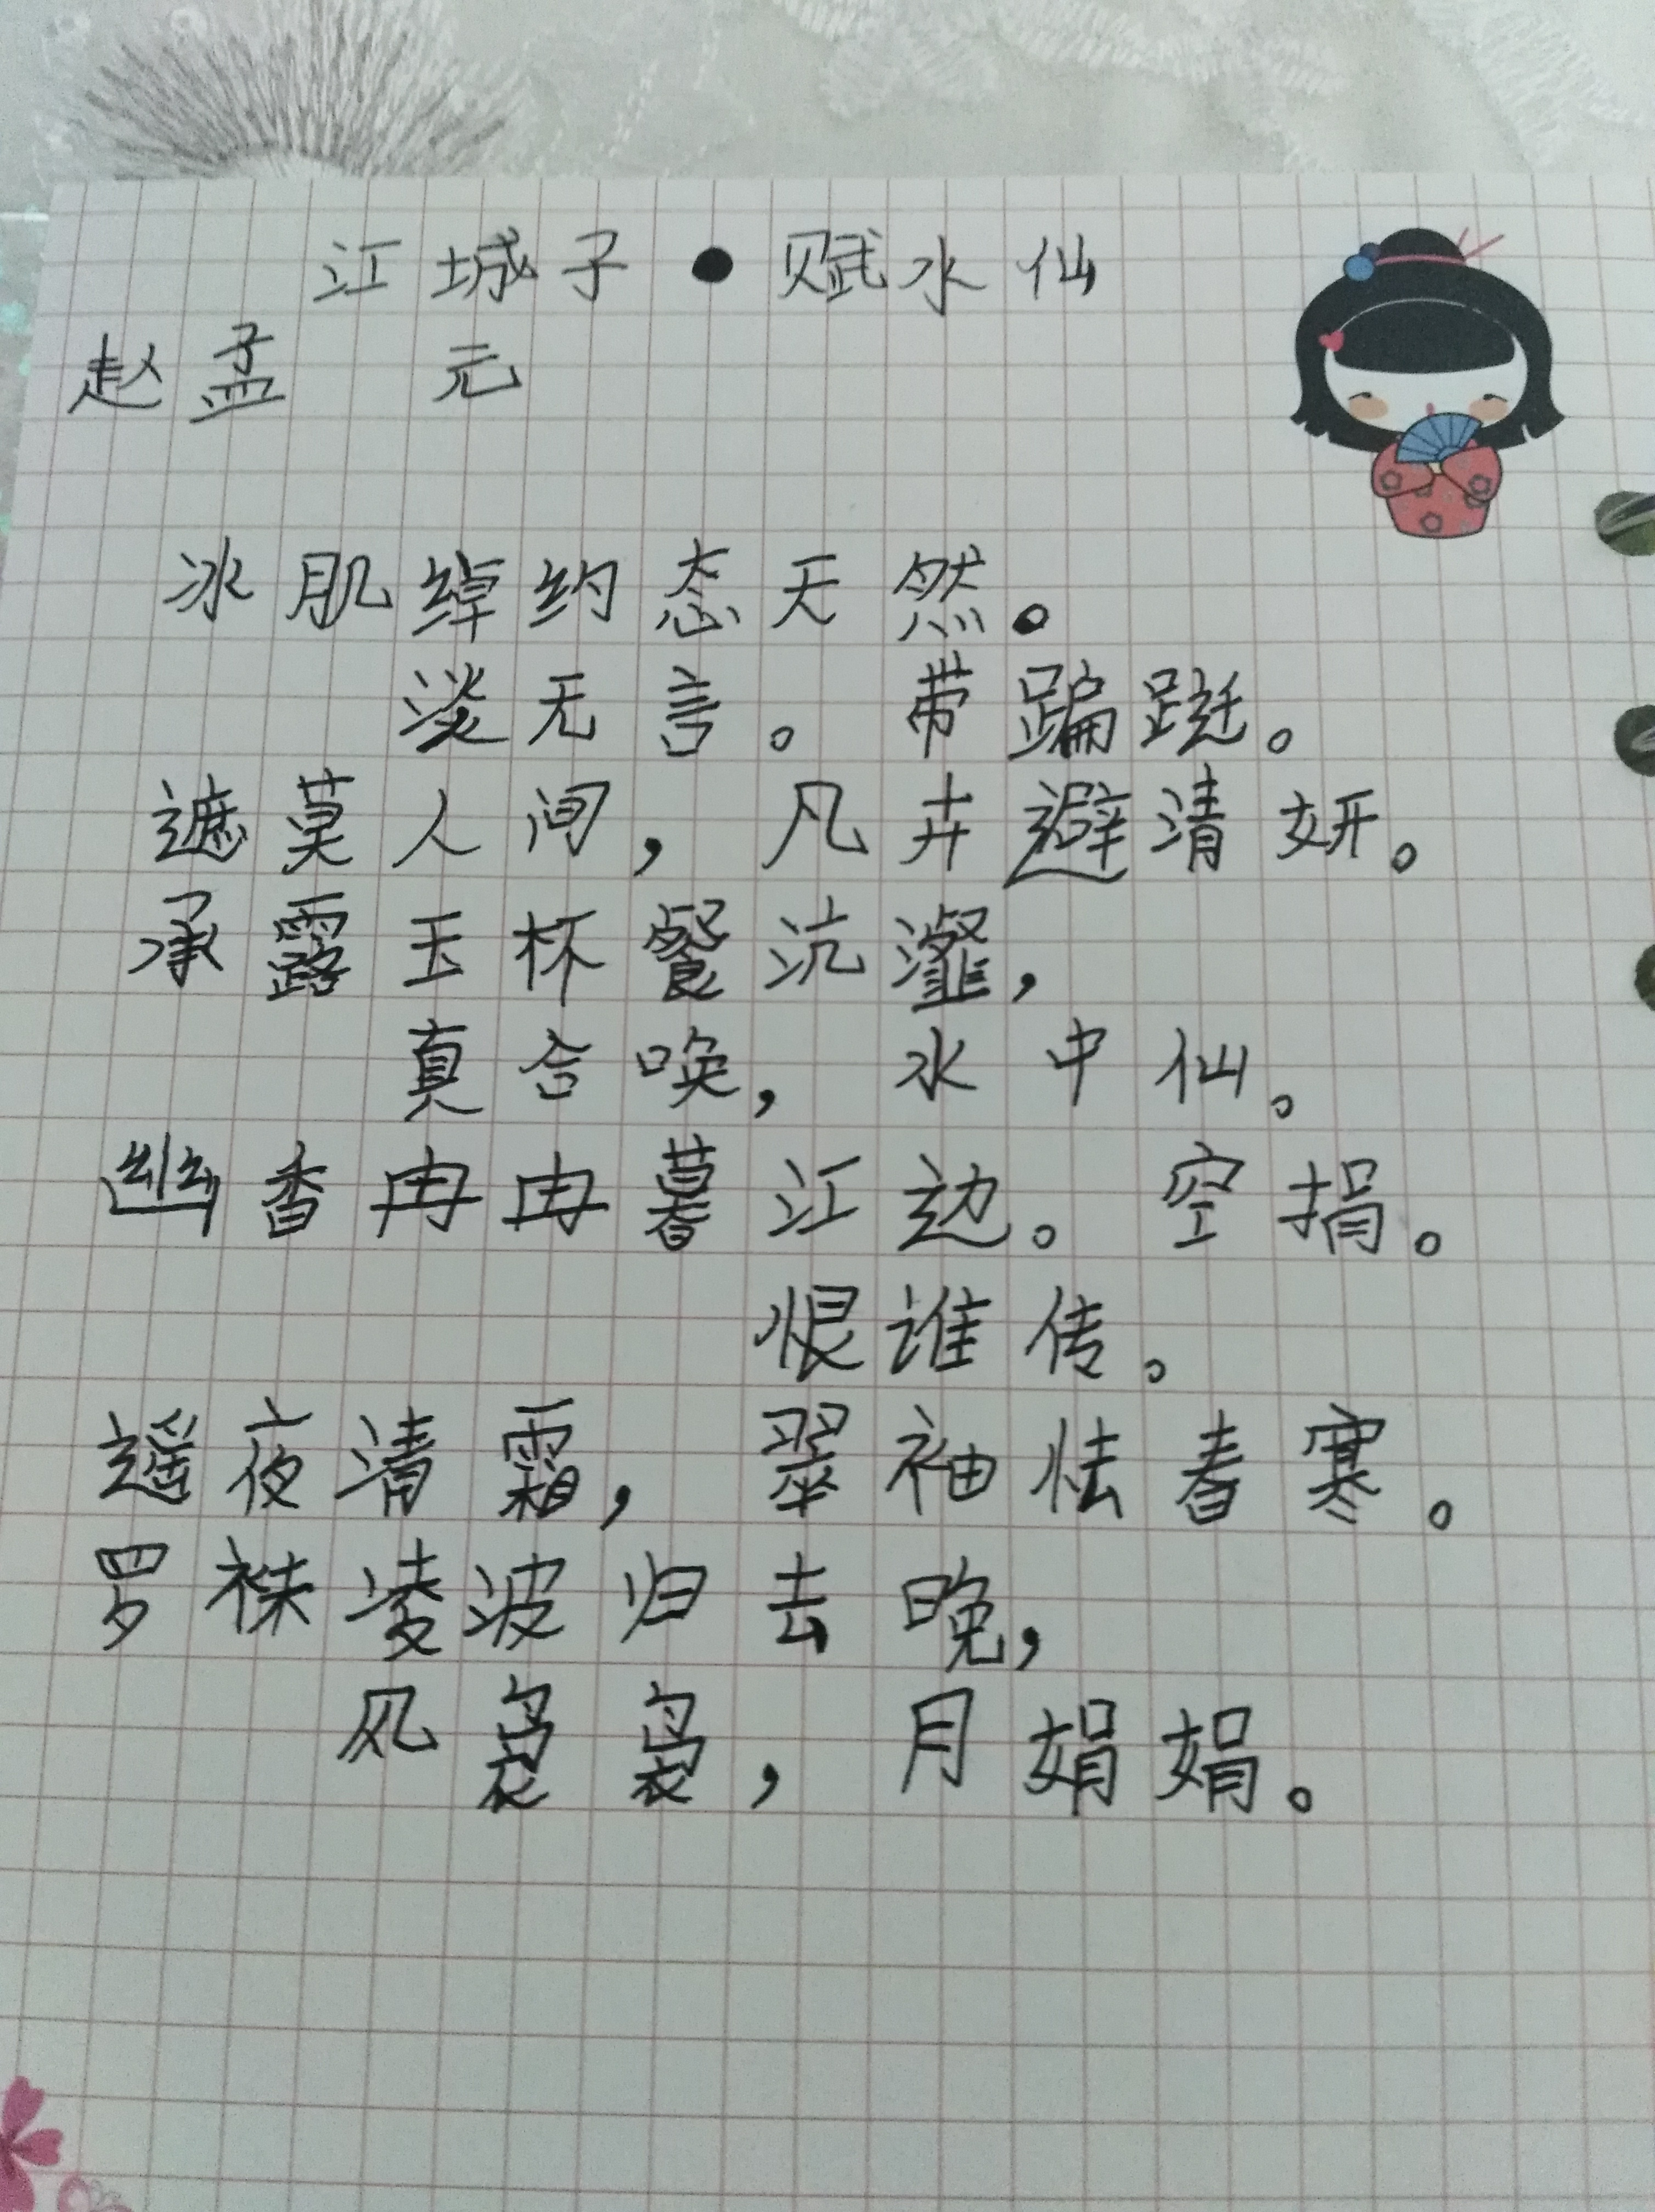 江城子●赋水仙
赵孟 元
冰肌绰约态天然。
淡无言。带蹁跹。
遮莫人间，凡卉避清妍。
承露玉杯餐沆瀣，
真合唤，水中仙。
幽香冉冉暮江边。空捐。
恨谁传。
遥夜清霜，翠袖怯春寒。
罗袜凌波归去晚，
风袅袅，月娟娟。